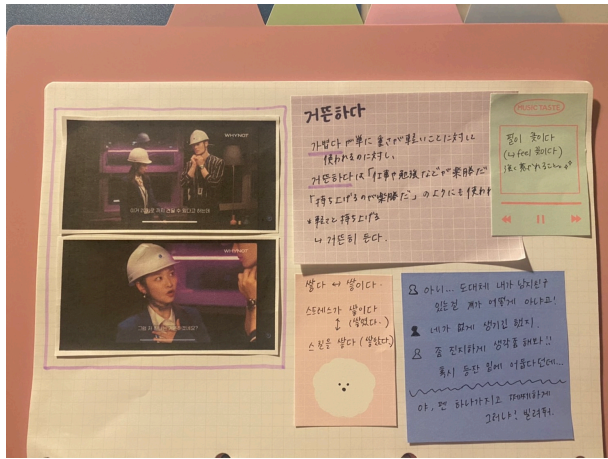 WHYNOT
WHYNOT
거뜬하다
가볍다 가 単に 重さが軽いことに対して
使われるのに対し、
거뜬하다 は「仕事や勉強などが楽勝だ」
「持ち上げるのが楽勝だ」のようにも使われ
*軽々と持ち上げる
↳ 거뜬히 든다.
MUSIC TASTE
필이 꽂이다
(나 feel 꽂이다)
쌓다 ↔ 쌓이다.
스트레스가 쌓이다
↕ (쌓였다.)
스킬을 쌓다 (쌓았다)
아니... 도대체 내가
있는걸 걔가 어떻게 아냐고!
네가 없게 생기긴 했지.
좀 진지하게 생각좀 해봐!!
혹시 등판
야, 펜 하나가지고 쩨쩨하게
그러냐! 빌려줘.